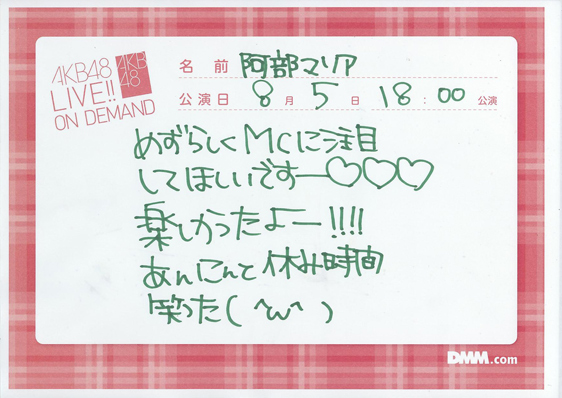 AKB48
LIVE!!
ON DEMAND
AKB
48
名前 阿部マリア
公演日 8月5日 18:00 公演
めずらしくMCに注目
してほしいですー♡♡♡
楽しかったよー!!!!
あんにんと休み時間
笑った( ^ω^ )
DMM.com